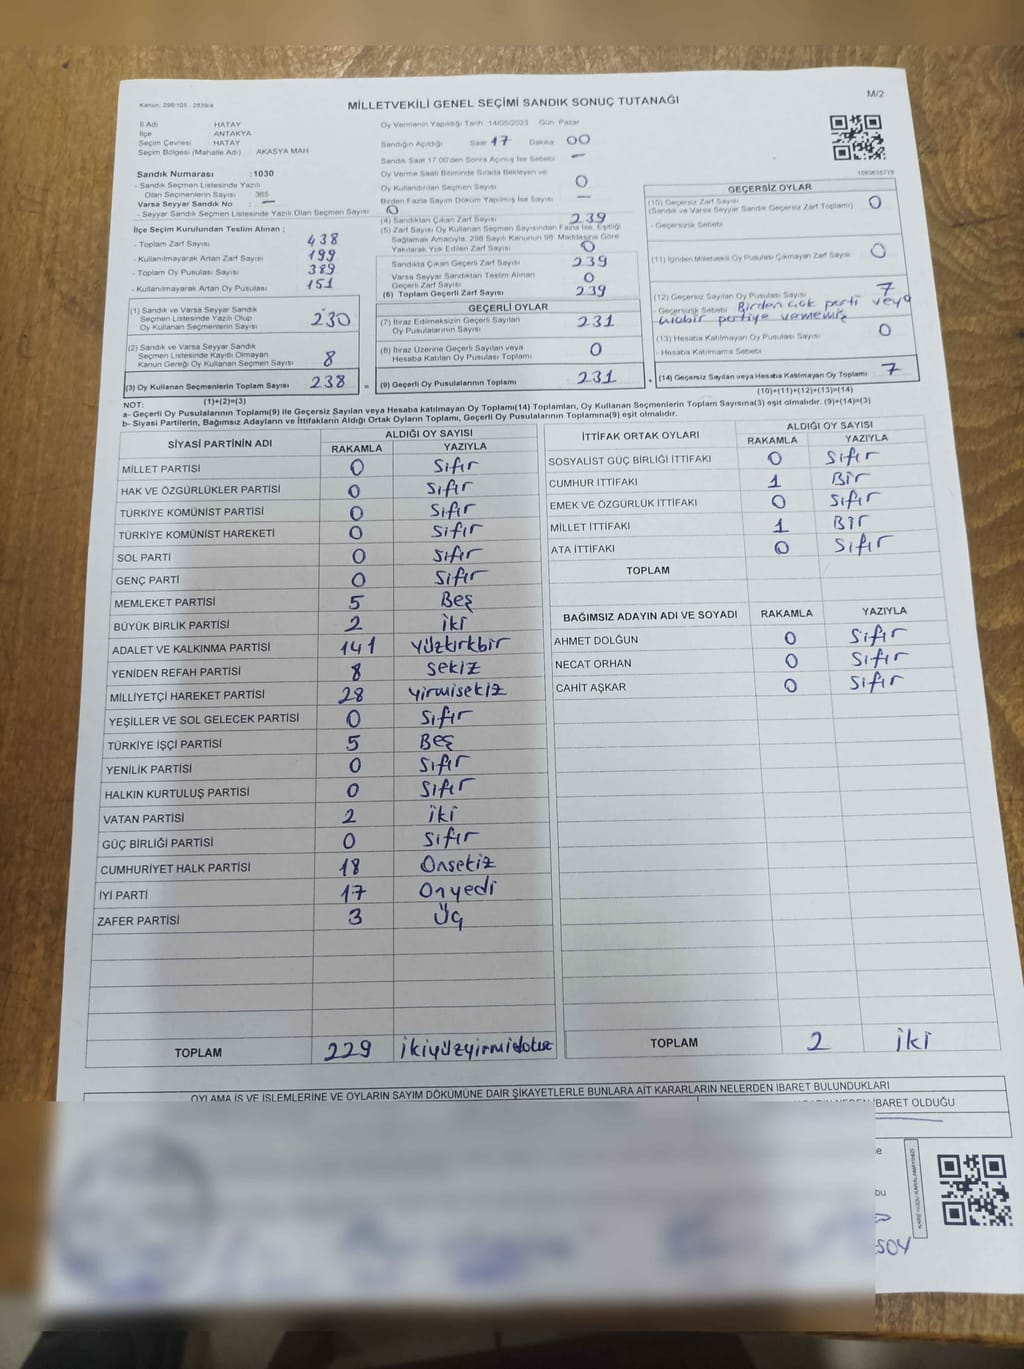 M/2
Kanun: 298/105 . 2839/4
MİLLETVEKİLİ GENEL SEÇİMİ SANDIK SONUÇ TUTANAĞI
İl Adı : HATAY
İlçe : ANTAKYA
Seçim Çevresi : HATAY
Seçim Bölgesi (Mahalle Adı) : AKASYA MAH
Sandık Numarası :1030
- Sandık Seçmen Listesinde Yazılı
Olan Seçmenlerin Sayısı : 365
Varsa Seyyar Sandık No : —
- Seyyar Sandık Seçmen Listesinde Yazılı Olan Seçmen Sayısı 0
İlçe Seçim Kurulundan Teslim Alınan ;
- Toplam Zarf Sayısı : 438
- Kullanılmayarak Artan Zarf Sayısı : 199
- Toplam Oy Pusulası Sayısı : 389
- Kullanılmayarak Artan Oy Pusulası : 151
(1) Sandık ve Varsa Seyyar Sandık
Seçmen Listesinde Yazılı Olup
Oy Kullanan Seçmenlerin Sayısı : 230
(2) Sandık ve Varsa Seyyar Sandık
Seçmen Listesinde Kayıtlı Olmayan
Kanun Gereği Oy Kullanan Seçmen Sayısı : 8
(3) Oy Kullanan Seçmenlerin Toplam Sayısı : 238
(1)+(2)=(3)
Oy Vermenin Yapıldığı Tarih : 14/05/2023 Gün : Pazar
Sandığın Açıldığı Saat : 17 Dakika : 00
Sandık Saat 17.00'den Sonra Açılmış İse Sebebi : —
Oy Verme Saati Bitiminde Sırada Bekleyen ve
Oy Kullandırılan Seçmen Sayısı : 0
Birden Fazla Sayım Döküm Yapılmış İse Sayısı : —
(4) Sandıktan Çıkan Zarf Sayısı : 239
(5) Zarf Sayısı Oy Kullanan Seçmen Sayısından Fazla İse, Eşitliği
Sağlamak Amacıyla, 298 Sayılı Kanunun 98. Maddesine Göre
Yakılarak Yok Edilen Zarf Sayısı : 0
Sandıkta Çıkan Geçerli Zarf Sayısı : 239
Varsa Seyyar Sandıktan Teslim Alınan
Geçerli Zarf Sayısı : 0
(6) Toplam Geçerli Zarf Sayısı : 239
GEÇERLİ OYLAR
(7) İtiraz Edilmeksizin Geçerli Sayılan
Oy Pusulalarının Sayısı : 231
(8) İtiraz Üzerine Geçerli Sayılan veya
Hesaba Katılan Oy Pusulası Toplamı : 0
= (9) Geçerli Oy Pusulalarının Toplamı : 231
GEÇERSİZ OYLAR
(10) Geçersiz Zarf Sayısı : 0
(Sandık ve Varsa Seyyar Sandık Geçersiz Zarf Toplamı)
- Geçersizlik Sebebi :
(11) İçinden Milletvekili Oy Pusulası Çıkmayan Zarf Sayısı : 0
(12) Geçersiz Sayılan Oy Pusulası Sayısı : 7
- Geçersizlik Sebebi : Birden çok parti veya
hiçbir partiye vermemiş
(13) Hesaba Katılmayan Oy Pusulası Sayısı : 0
- Hesaba Katılmama Sebebi :
+ (14) Geçersiz Sayılan veya Hesaba Katılmayan Oy Toplamı : 7
(10)+(11)+(12)+(13)=(14)
NOT:
a- Geçerli Oy Pusulalarının Toplamı(9) ile Geçersiz Sayılan veya Hesaba katılmayan Oy Toplamı(14) Toplamları, Oy Kullanan Seçmenlerin Toplam Sayısına(3) eşit olmalıdır. (9)+(14)=(3)
b- Siyasi Partilerin, Bağımsız Adayların ve İttifakların Aldığı Ortak Oyların Toplamı, Geçerli Oy Pusulalarının Toplamına(9) eşit olmalıdır.
SİYASİ PARTİNİN ADI ALDIĞI OY SAYISI
RAKAMLA YAZIYLA
MİLLET PARTİSİ 0 Sıfır
HAK VE ÖZGÜRLÜKLER PARTİSİ 0 Sıfır
TÜRKİYE KOMÜNİST PARTİSİ 0 Sıfır
TÜRKİYE KOMÜNİST HAREKETİ 0 Sıfır
SOL PARTİ 0 Sıfır
GENÇ PARTİ 0 Sıfır
MEMLEKET PARTİSİ 5 Beş
BÜYÜK BİRLİK PARTİSİ 2 İki
ADALET VE KALKINMA PARTİSİ 141 Yüzkırkbir
YENİDEN REFAH PARTİSİ 8 Sekiz
MİLLİYETÇİ HAREKET PARTİSİ 28 Yirmisekiz
YEŞİLLER VE SOL GELECEK PARTİSİ 0 Sıfır
TÜRKİYE İŞÇİ PARTİSİ 5 Beş
YENİLİK PARTİSİ 0 Sıfır
HALKIN KURTULUŞ PARTİSİ 0 Sıfır
VATAN PARTİSİ 2 İki
GÜÇ BİRLİĞİ PARTİSİ 0 Sıfır
CUMHURİYET HALK PARTİSİ 18 Onsekiz
İYİ PARTİ 17 Onyedi
ZAFER PARTİSİ 3 Üç
TOPLAM 229 İkiyüzyirmidokuz
İTTİFAK ORTAK OYLARI ALDIĞI OY SAYISI
RAKAMLA YAZIYLA
SOSYALİST GÜÇ BİRLİĞİ İTTİFAKI 0 Sıfır
CUMHUR İTTİFAKI 1 Bir
EMEK VE ÖZGÜRLÜK İTTİFAKI 0 Sıfır
MİLLET İTTİFAKI 1 Bir
ATA İTTİFAKI 0 Sıfır
TOPLAM
BAĞIMSIZ ADAYIN ADI VE SOYADI RAKAMLA YAZIYLA
AHMET DOLĞUN 0 Sıfır
NECAT ORHAN 0 Sıfır
CAHİT AŞKAR 0 Sıfır
TOPLAM 2 İki
OYLAMA İŞ VE İŞLEMLERİNE VE OYLARIN SAYIM DÖKÜMÜNE DAİR ŞİKAYETLERLE BUNLARA AİT KARARLARIN NELERDEN İBARET BULUNDUKLARI
İBARET OLDUĞU
bu
SOY